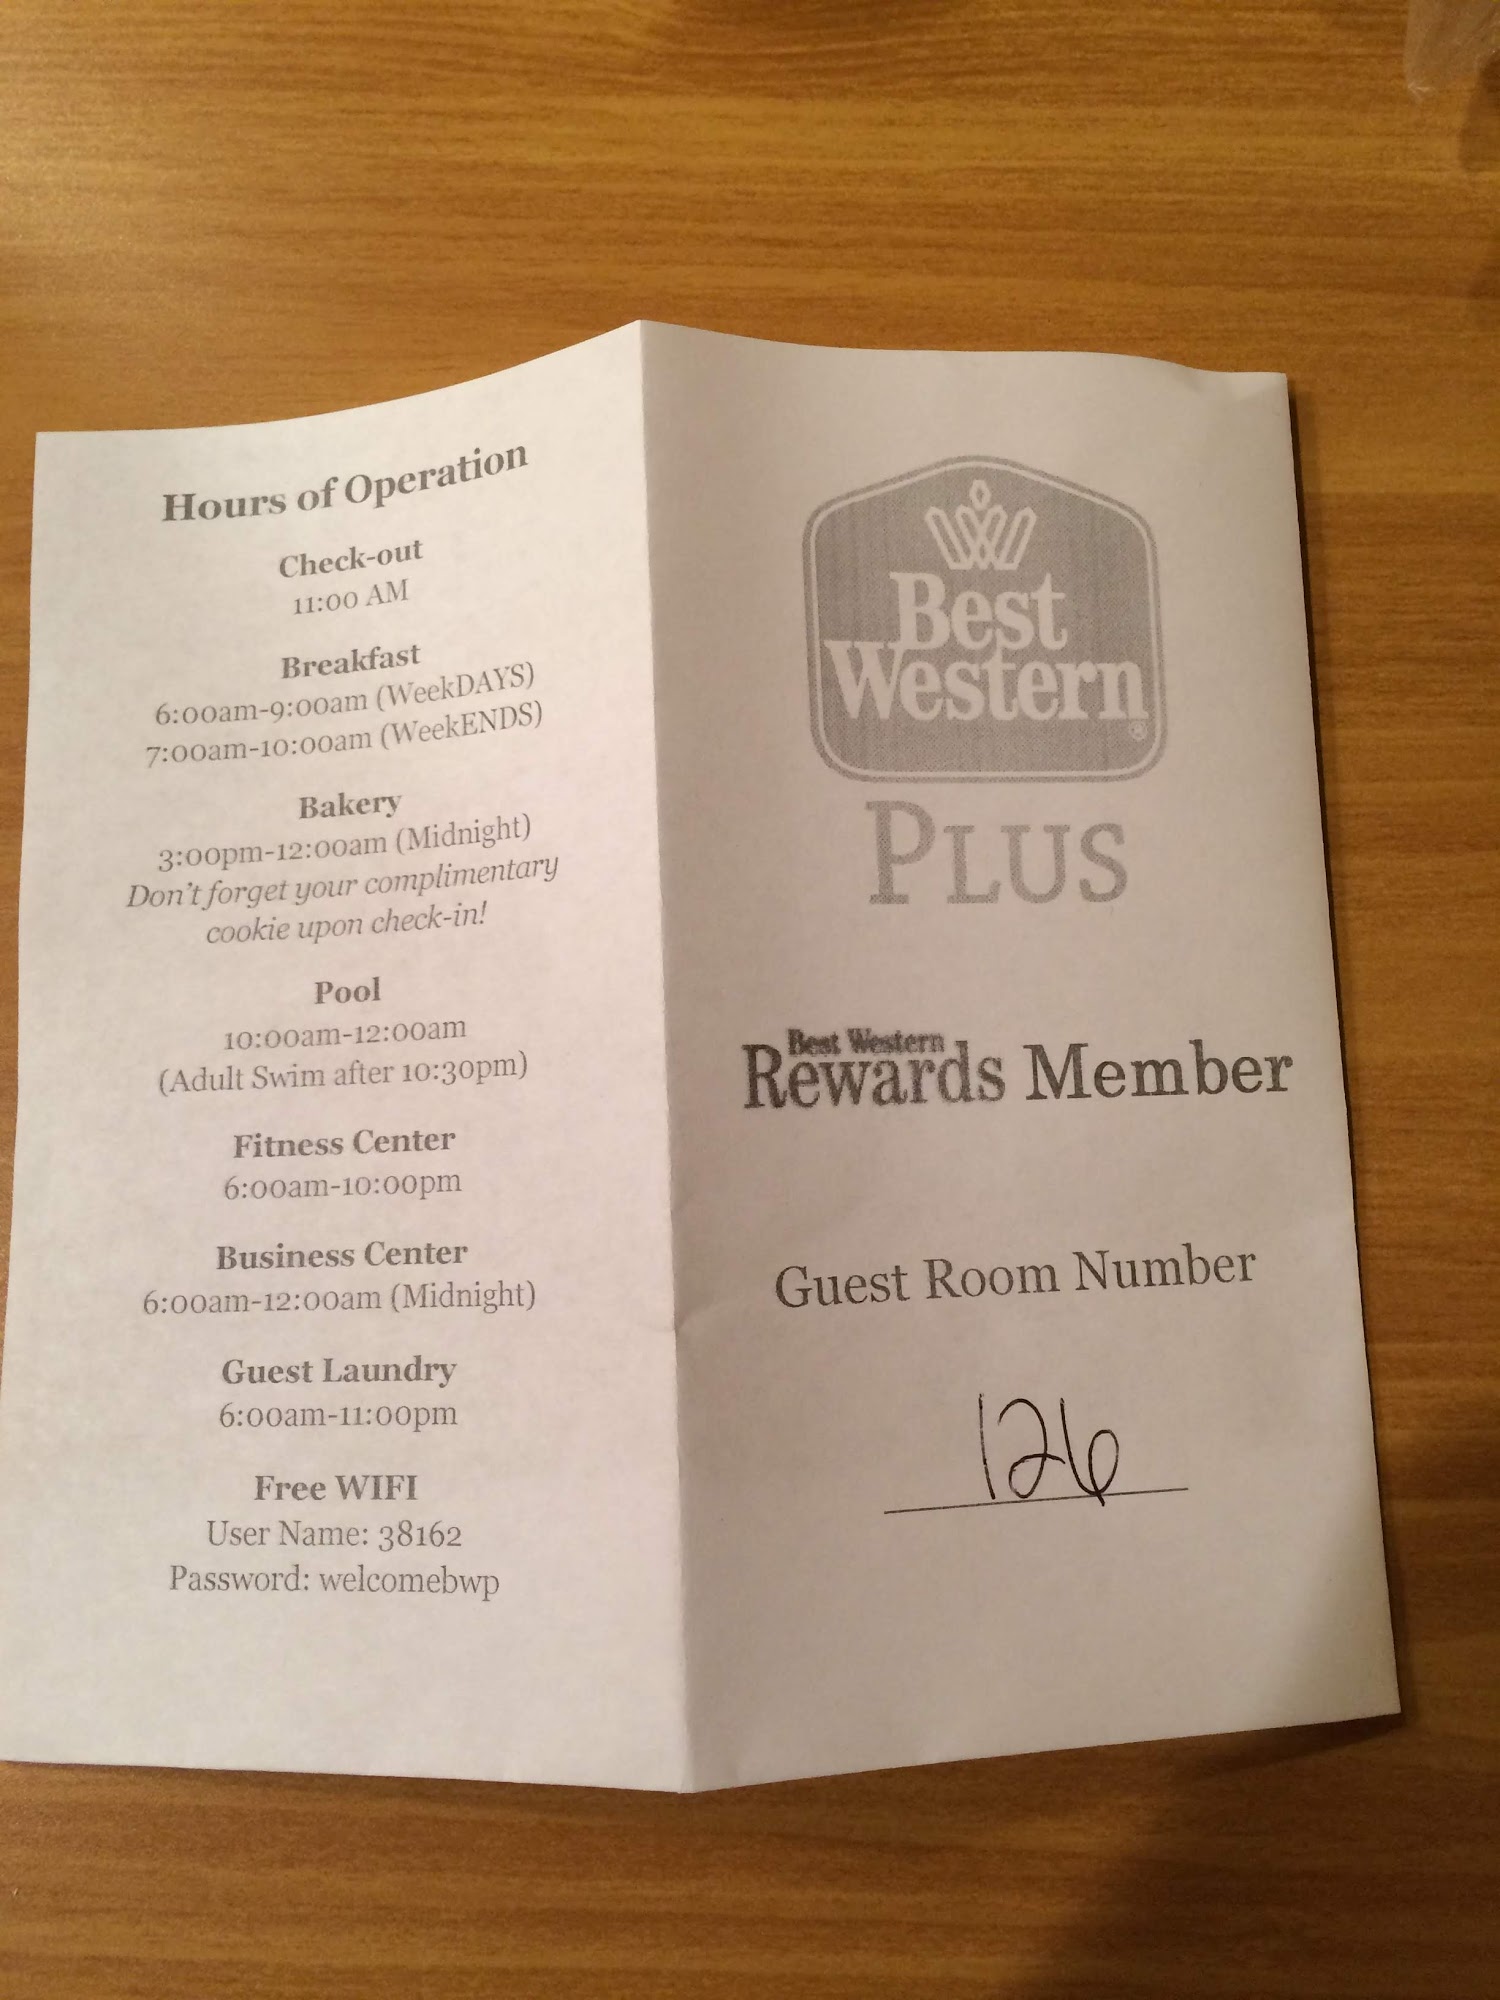 Hours of Operation
Check-out
11:00 AM
Breakfast
6:00am-9:00am (WeekDAYS)
7:00am-10:00am (WeekENDS)
Bakery
3:00pm-12:00am (Midnight)
Don't forget your complimentary
cookie upon check-in!
Pool
10:00am-12:00am
(Adult Swim after 10:30pm)
Fitness Center
6:00am-10:00pm
Business Center
6:00am-12:00am (Midnight)
Guest Laundry
6:00am-11:00pm
Free WIFI
User Name: 38162
Password: welcomebwp
Best
Western®
PLUS
Best Western
Rewards Member
Guest Room Number
126